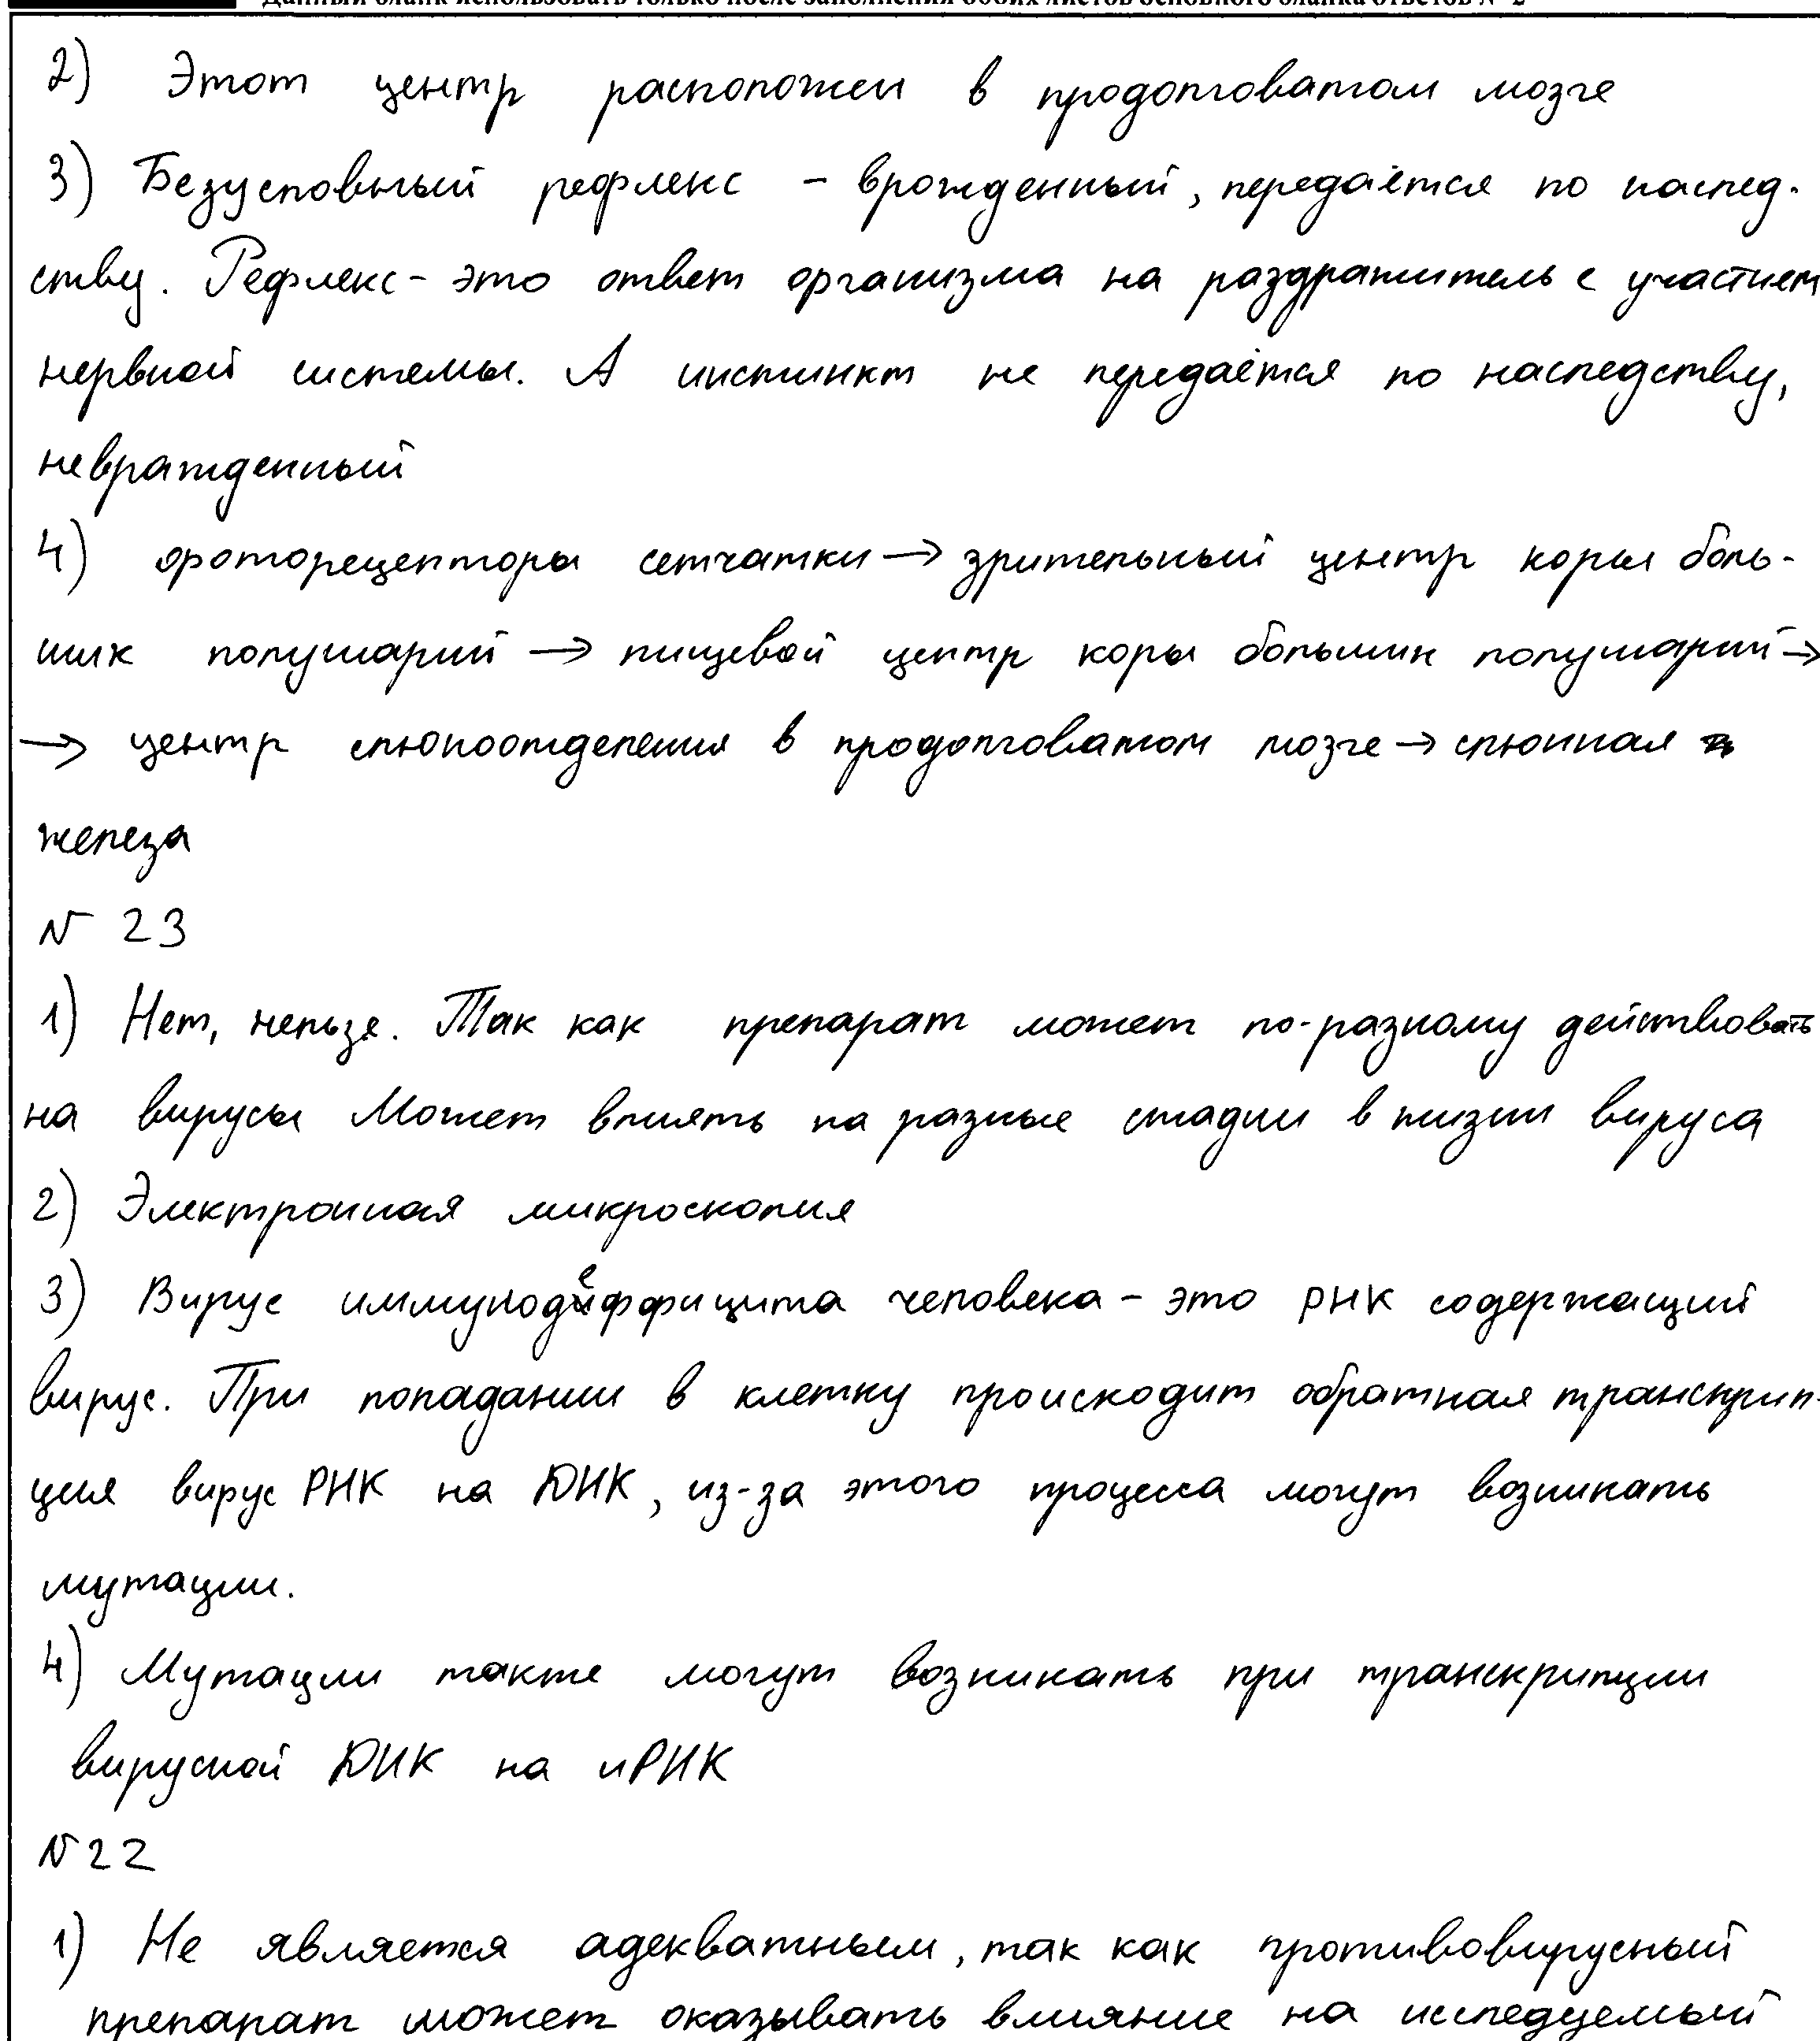 Данный бланк использовать только после заполнения обоих листов основного бланка ответов № 2
2) Этот центр расположен в продолговатом мозге
3) Безусловный рефлекс - врожденный, передаётся по наслед-
ству. Рефлекс - это ответ организма на раздражитель с участием
нервной системы. А инстинкт не передаётся по наследству,
невражденный
4) фоторецепторы сетчатки → зрительный центр коры боль-
ших полушарий → пищевой центр коры больших полушарий →
→ центр слюноотделения в продолговатом мозге → слюнная
железа
№ 23
1) Нет, нельзя. Так как препарат может по-разному действовать
на вирусы Может влиять на разные стадии в жизни вируса
2) Электронная микроскопия
3) Вирус иммунодеффицита человека - это РНК содержащий
вирус. При попадании в клетку происходит обратная транскрип-
ция вирус РНК на ДНК, из-за этого процесса могут возникать
мутации.
4) Мутации также могут возникать при транскрипции
вирусной ДНК на иРНК
№22
1) Не является адекватным, так как противовирусный
препарат может оказывать влияние на исследуемый